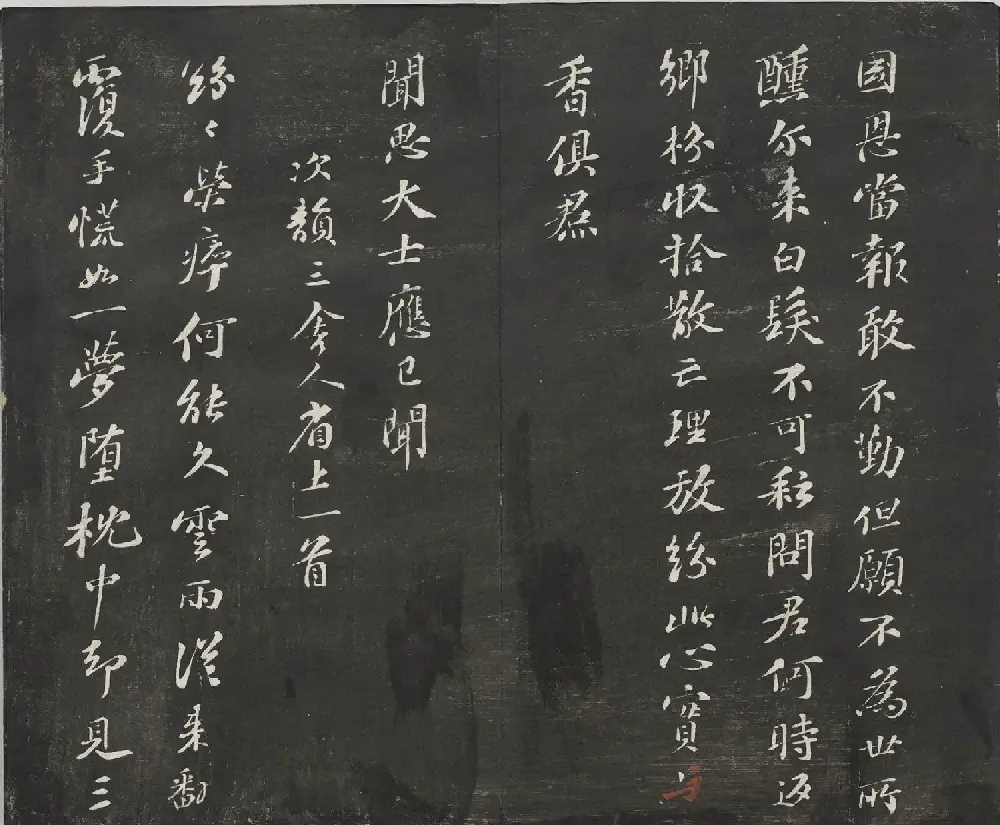 國恩當報敢不勤但願不為世所
醺尔来白髮不可耘問君何時返
鄉枌収拾散亡理放紛此心實与
香俱焄
聞思大士應已聞
次韻三舍人省上一首
紛〻榮瘁何能久雲雨従来翻
覆手慌如一夢堕枕中却見三